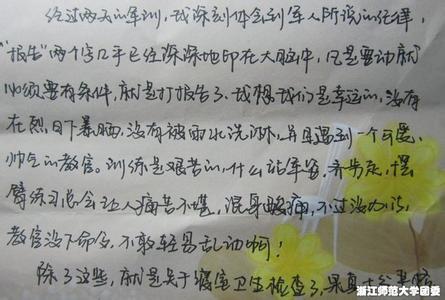 经过两天的军训，我深刻体会到军人所说的纪律，
"报告"两个字几乎已经深深地印在大脑中，凡是要动就
必须要有条件，就是打报告了。我想我们是幸运的，没有
在烈日下暴晒，没有被雨水洗淋，并且遇到一个可爱、
帅气的教官。训练是艰苦的，什么站军姿、齐步走，摆
臂练习总会让人痛苦不堪，浑身酸痛，不过没办法，
教官没下命令，不敢轻易乱动啊！
除了这些，就是关于寝室卫生检查了，果真十分严格
浙江师范大学团委